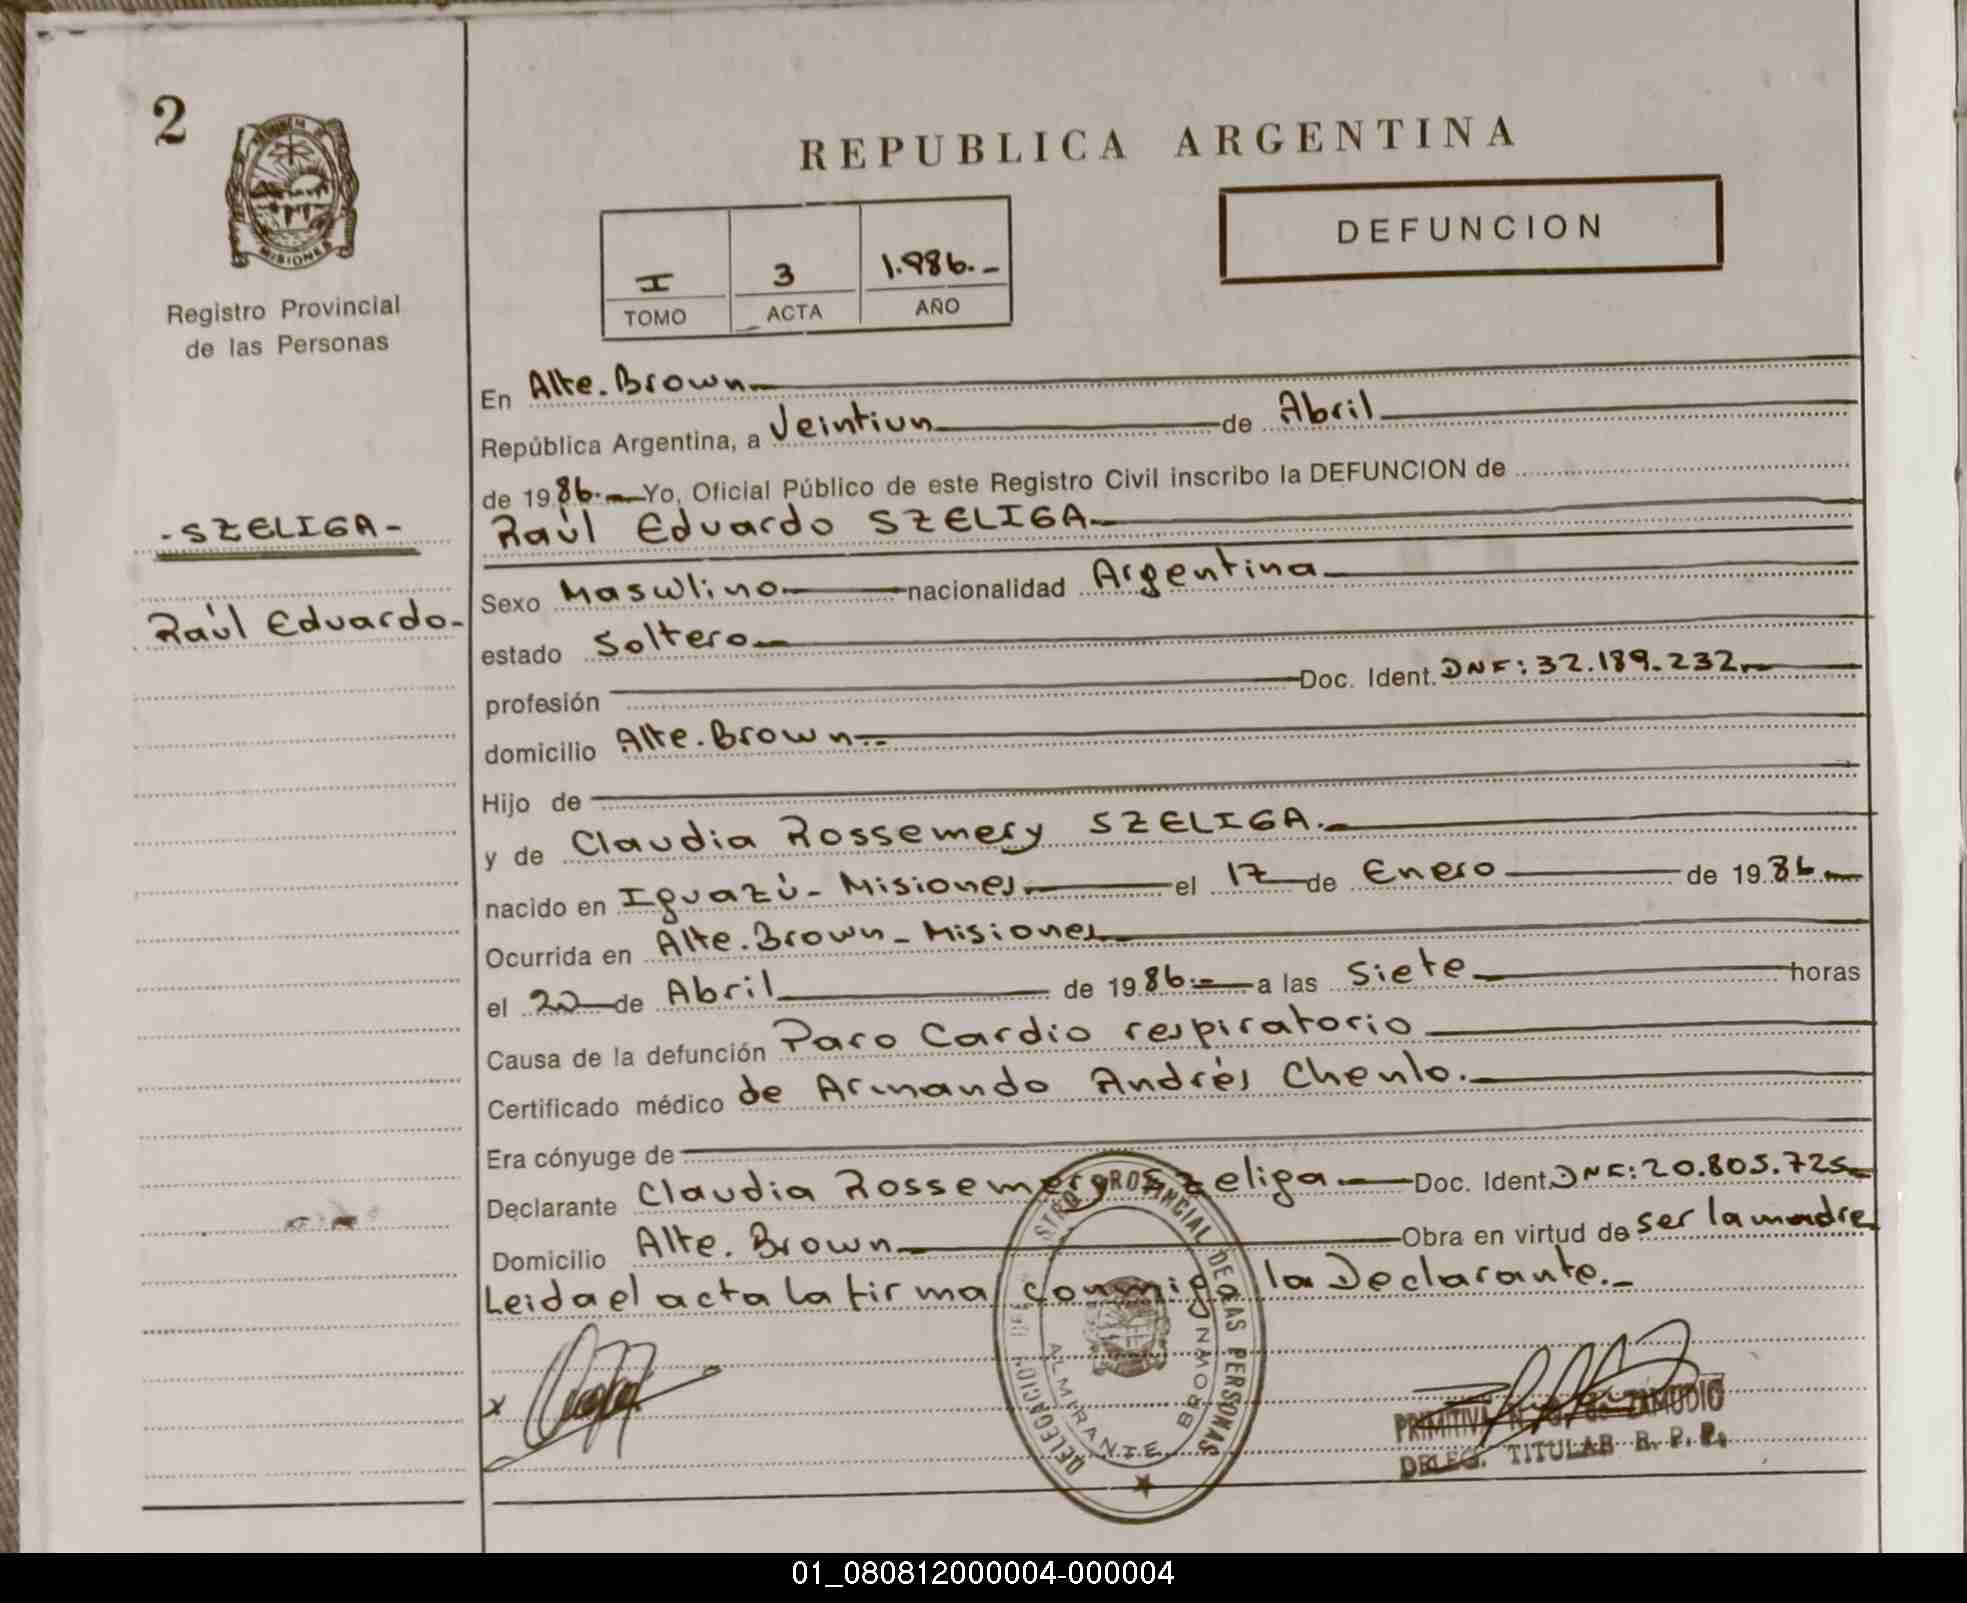 2
MISIONES
Registro Provincial
de las Personas
-SZELIGA-
Raúl Eduardo-
REPUBLICA ARGENTINA
DEFUNCION
I 3 1.986.-
TOMO ACTA AÑO
En Alte. Brown
República Argentina, a Veintiun de Abril
de 1986.- Yo, Oficial Público de este Registro Civil inscribo la DEFUNCION de
Raúl Eduardo SZELIGA
Sexo Masculino nacionalidad Argentina
estado Soltero
profesión Doc. Ident. DNI: 32.189.232
domicilio Alte. Brown
Hijo de
y de Claudia Rossemery SZELIGA.
nacido en Iguazú - Misiones el 17 de Enero de 1986
Ocurrida en Alte. Brown - Misiones
el 20 de Abril de 1986.- a las Siete horas
Causa de la defunción Paro Cardio respiratorio
Certificado médico de Armando Andrés Chenlo.
Era cónyuge de
Declarante Claudia Rossemery Szeliga Doc. Ident. DNI: 20.805.725
Domicilio Alte. Brown Obra en virtud de ser la madre
Leida el acta la firma conmigo la Declarante.-
x
PROVINCIAL DE LAS PERSONAS
DELEGACION
ALMIRANTE BROWN
PRIMITIVA N. de ZAMUDIO
DELEG. TITULAR R. P. P.
01_080812000004-000004